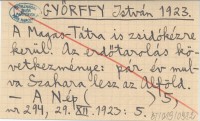 GYÖRFFY István 1923.
A Magas-Tátra is zsidókézre
kerül. Az erdőtarolás kö-
vetkezménye: pár év mal-
va Szahara lesz az Alföld.
— A Nép ( ) 5,
nr 294, 29. XII. 1923: 5.